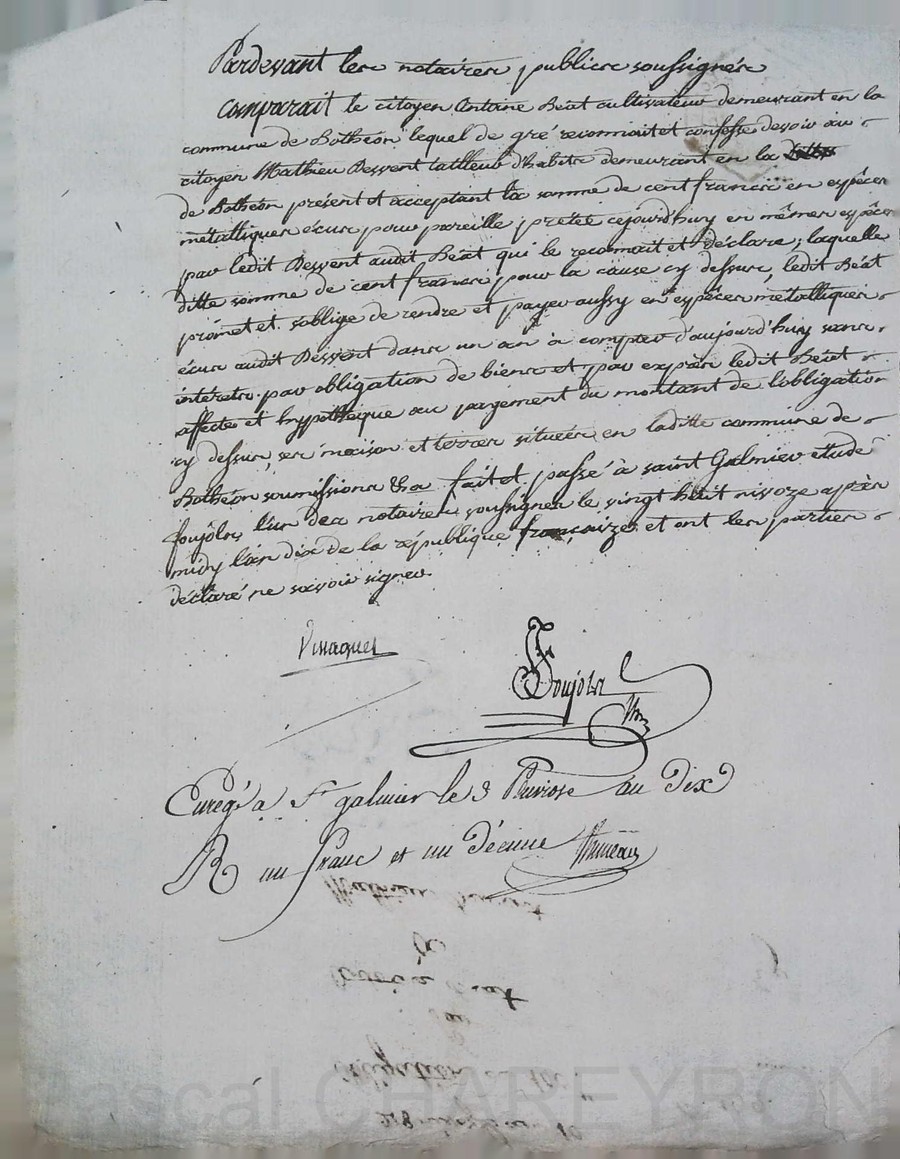 Pardevant les notaires publics soussignés
Comparait le citoyen Antoine Béat cultivateur demeurant en la
commune de Bothéon lequel de gré reconnoit et confesse devoir au
citoyen Mathieu Dessent tailleur d'habits demeurant en la
de Bothéon présent et acceptant la somme de cent francs en espèces
métalliques écus pour pareille pretée cejourd'huy en mêmes espèces
par ledit Dessent audit Béat qui le reconnoit et déclare, laquelle
ditte somme de cent francs pour la cause cy dessus, ledit Béat
promet et s'oblige de rendre et payer aussy en espèces métalliques
écus audit Dessent dans un an à compter d'aujourd'huy sans
intérets par obligation de biens et par exprès ledit Béat
affecte et hypothèque au payement du montant de l'obligation
cy dessus, ses maison et terres situées en laditte commune de
Bothéon soumissions &a fait et passé à saint Galmier etude
foujols, l'un des notaires soussignés le vingt huit nivoze après
midy l'an dix de la république françaize et ont les parties
déclaré ne savoir signer
Foujols
Enregé a St galmier le 3 Pluviose an Dix
R un franc et un décime
De
Pascal CHAREYRON